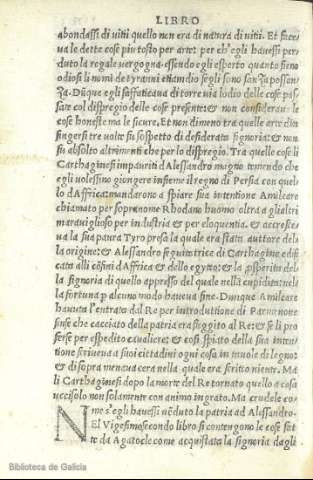 LIBRO
abondassi di vitii quello non era di natura di vitii. Et facea
ua le dette cose piu tosto per arte: per ch'egli hauessi per
duto la regale vergogna. essendo egli esperto quanto sieno
odiosi li nomi de tyranni etiamdio segli sono sanza possan
za. Dūque egli s'affaticaua di torre via lodio delle cose pas
sate col dispregio delle cose presente: & non considerau le
cose honeste ma le sicure, Et non dimeno tra quelle arte dis
fingersi tre volte fu sospetto di desiderata signoria: & non
fu absolto altrimenti che per lo dispregio. Tra quelle cose li
Carthaginesi impauriti d'Alessandro magno temendo che
egli volessino giongere insieme il regno di Persia con quel
lo d'Affrica: mandorono a spiare sua intentione Amilcare
chiamato per sopranome Rhodano huomo oltra a gli altri
marauiglioso per industria & per eloquentia. & accresce
ua la sua paura Tyro presa la quale era stata auttore della
la origine: & Alessandro seguitrice di Carthagine edifi
cata alli cōfini d'Affrica & dello egytto: & la ꝓsperita del
la signoria di quello appresso del quale nella cupidita ne
la fortuna p alcuno modo haueua fine. Dunque Amilcare
hauuta l'entrata dal Re per introduttione di Parmonone
finse che cacciato della patria era fuggito al Re: & se li pro
ferse per espedito caualiere: & cosi spiato della sua inten
tione scriueua a suoi citadini ogni cosa in tauole di legno:
& di sopra meneua cera nella quale era scritto niente. Ma
li Carthaginesi dopo la morte del Re tornato quello a casa
uccisolo non solamente con animo ingrato, Ma crudele co
me s'egli hauessi uēduto la patria ad Alessandro.
NEl Vigesimosecondo libro si contengono le cose fat
te da Agatocle come acquistata la signoria dagli
Biblioteca de Galicia